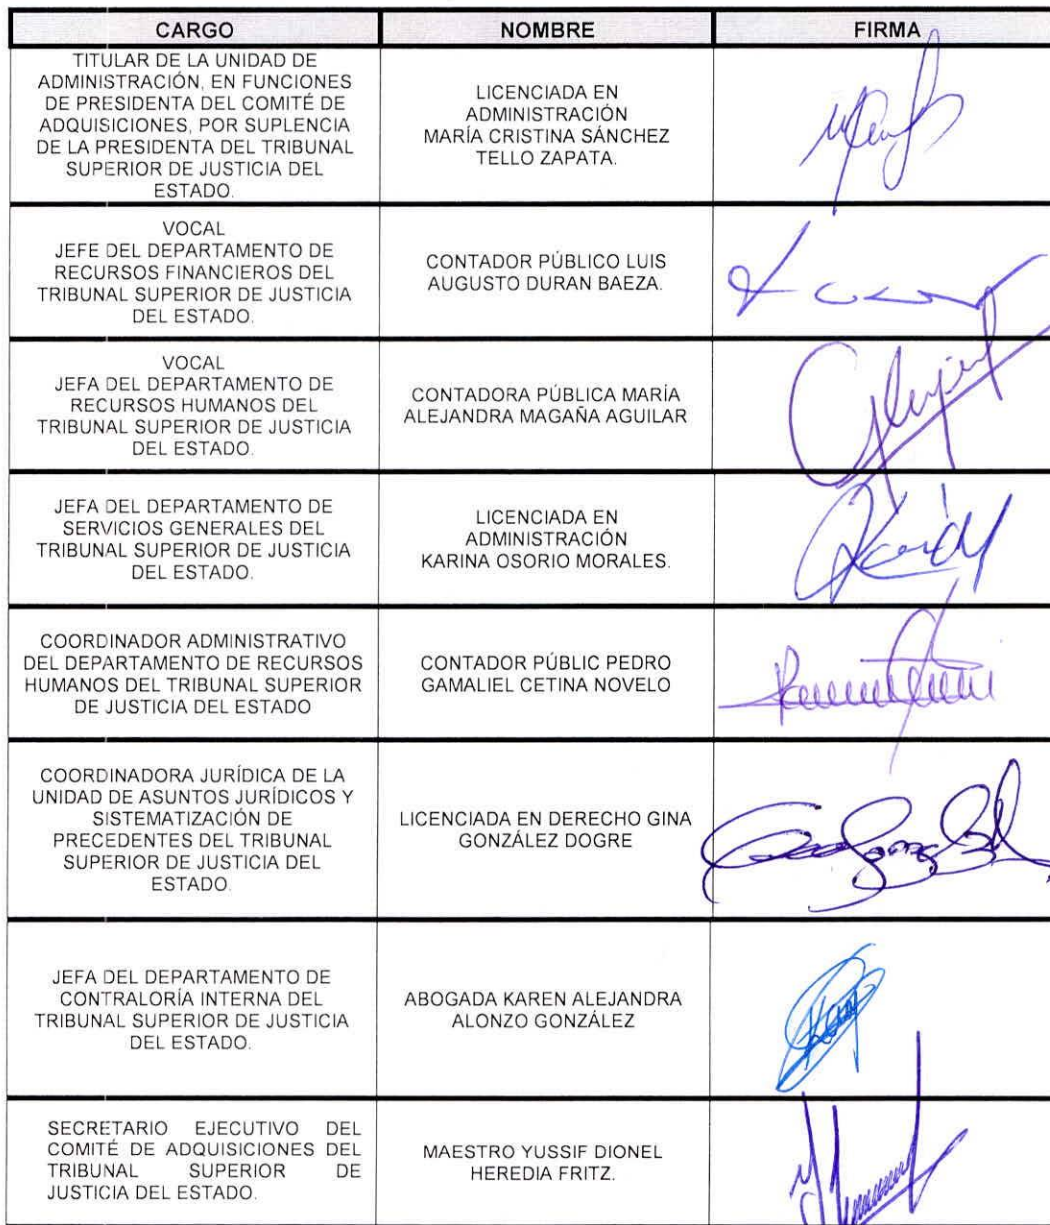 CARGO
NOMBRE
FIRMA
TITULAR DE LA UNIDAD DE
ADMINISTRACIÓN, EN FUNCIONES
DE PRESIDENTA DEL COMITÉ DE
ADQUISICIONES, POR SUPLENCIA
DE LA PRESIDENTA DEL TRIBUNAL
SUPERIOR DE JUSTICIA DEL
ESTADO.
LICENCIADA EN
ADMINISTRACIÓN
MARÍA CRISTINA SÁNCHEZ
TELLO ZAPATA.
VOCAL
JEFE DEL DEPARTAMENTO DE
RECURSOS FINANCIEROS DEL
TRIBUNAL SUPERIOR DE JUSTICIA
DEL ESTADO.
CONTADOR PÚBLICO LUIS
AUGUSTO DURAN BAEZA.
VOCAL
JEFA DEL DEPARTAMENTO DE
RECURSOS HUMANOS DEL
TRIBUNAL SUPERIOR DE JUSTICIA
DEL ESTADO.
CONTADORA PÚBLICA MARÍA
ALEJANDRA MAGAÑA AGUILAR
JEFA DEL DEPARTAMENTO DE
SERVICIOS GENERALES DEL
TRIBUNAL SUPERIOR DE JUSTICIA
DEL ESTADO.
LICENCIADA EN
ADMINISTRACIÓN
KARINA OSORIO MORALES.
COORDINADOR ADMINISTRATIVO
DEL DEPARTAMENTO DE RECURSOS
HUMANOS DEL TRIBUNAL SUPERIOR
DE JUSTICIA DEL ESTADO
CONTADOR PÚBLIC PEDRO
GAMALIEL CETINA NOVELO
COORDINADORA JURÍDICA DE LA
UNIDAD DE ASUNTOS JURÍDICOS Y
SISTEMATIZACIÓN DE
PRECEDENTES DEL TRIBUNAL
SUPERIOR DE JUSTICIA DEL
ESTADO.
LICENCIADA EN DERECHO GINA
GONZÁLEZ DOGRE
JEFA DEL DEPARTAMENTO DE
CONTRALORÍA INTERNA DEL
TRIBUNAL SUPERIOR DE JUSTICIA
DEL ESTADO.
ABOGADA KAREN ALEJANDRA
ALONZO GONZÁLEZ
SECRETARIO EJECUTIVO DEL
COMITÉ DE ADQUISICIONES DEL
TRIBUNAL SUPERIOR DE
JUSTICIA DEL ESTADO.
MAESTRO YUSSIF DIONEL
HEREDIA FRITZ.